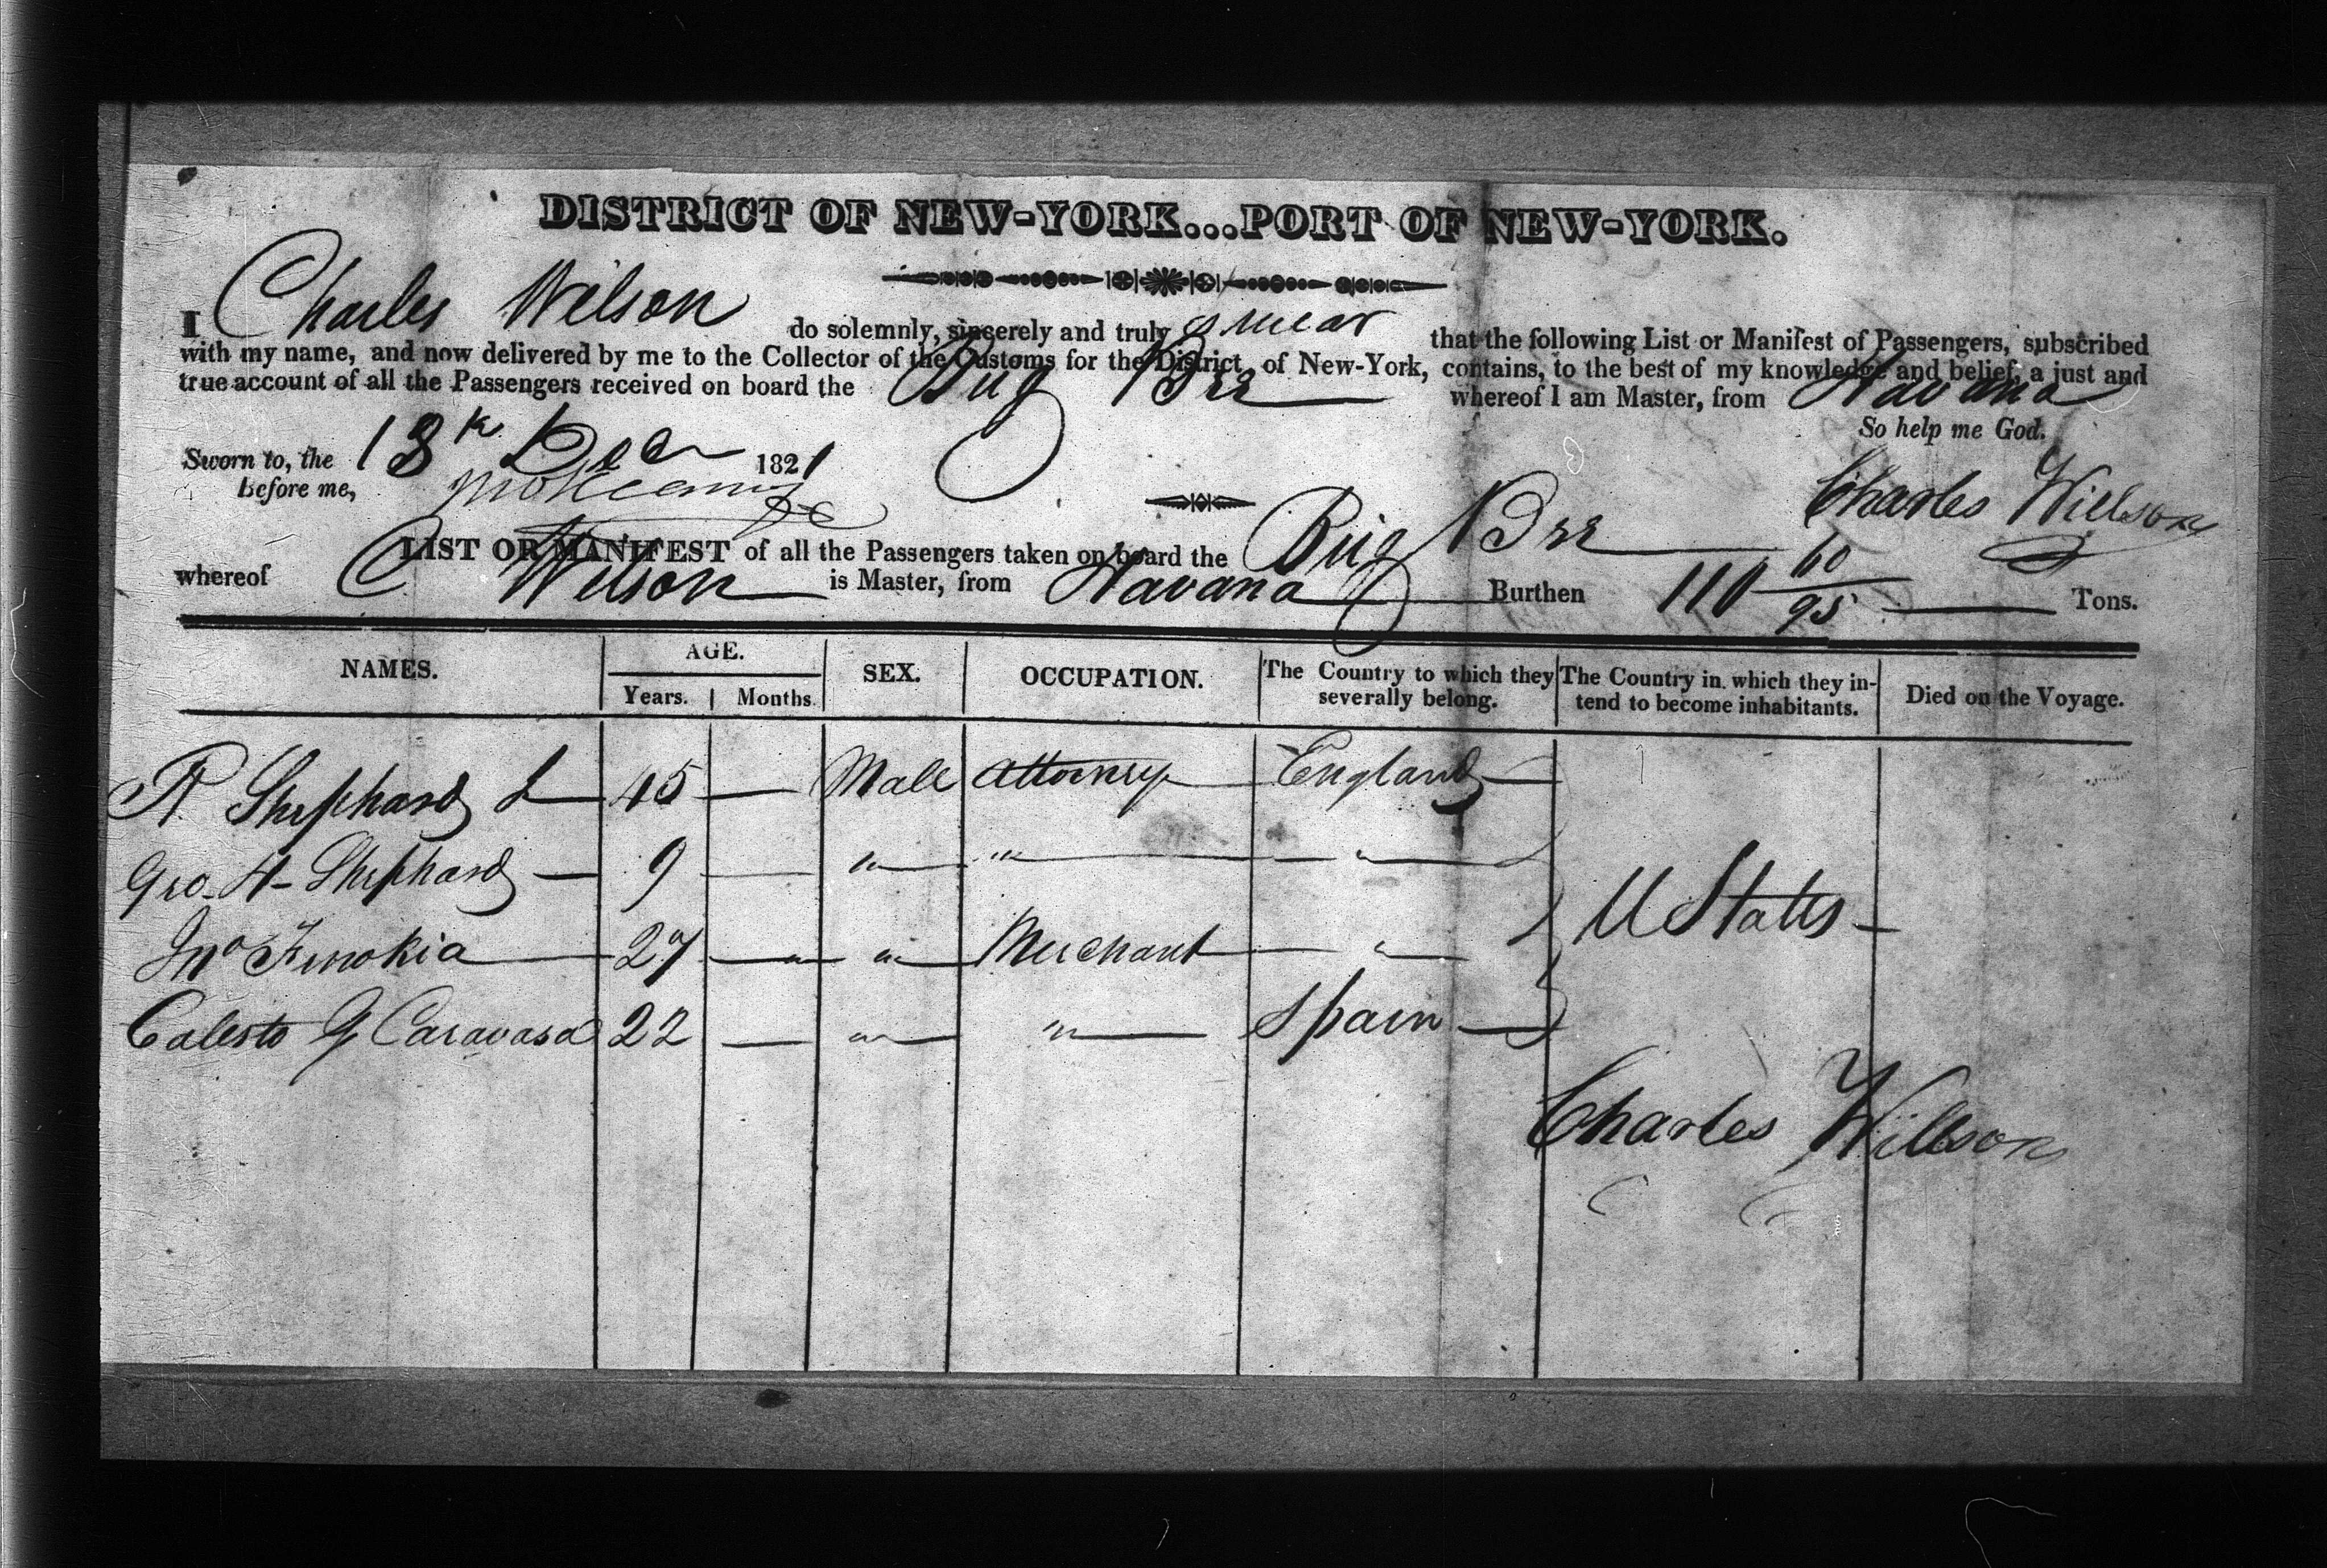 DISTRICT OF NEW-YORK...PORT OF NEW-YORK.
I Charles Wilson do solemnly, sincerely and truly swear that the following List or Manifest of Passengers, subscribed
with my name, and now delivered by me to the Collector of the Customs for the District of New-York, contains, to the best of my knowledge and belief, a just and
true account of all the Passengers received on board the Brig Bee whereof I am Master, from Havana
So help me God.
Sworn to, the 18th Dec 1821
Before me,
Charles Willson
LIST OR MANIFEST of all the Passengers taken on board the Brig Bee
whereof C Wilson is Master, from Havana Burthen 110 60/95 Tons.
NAMES. AGE. SEX. OCCUPATION. The Country to which they severally belong. The Country in which they in-tend to become inhabitants. Died on the Voyage.
Years. Months.
R Shephard 45 Male Attorney England
Geo. H Shephard 9 " " "
Jno 27 " " Merchant "
Calesto G Caravasa 22 " " Spain
U States
Charles Willson